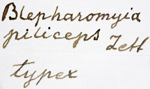 Blepharomyia
piliceps Zett
typex